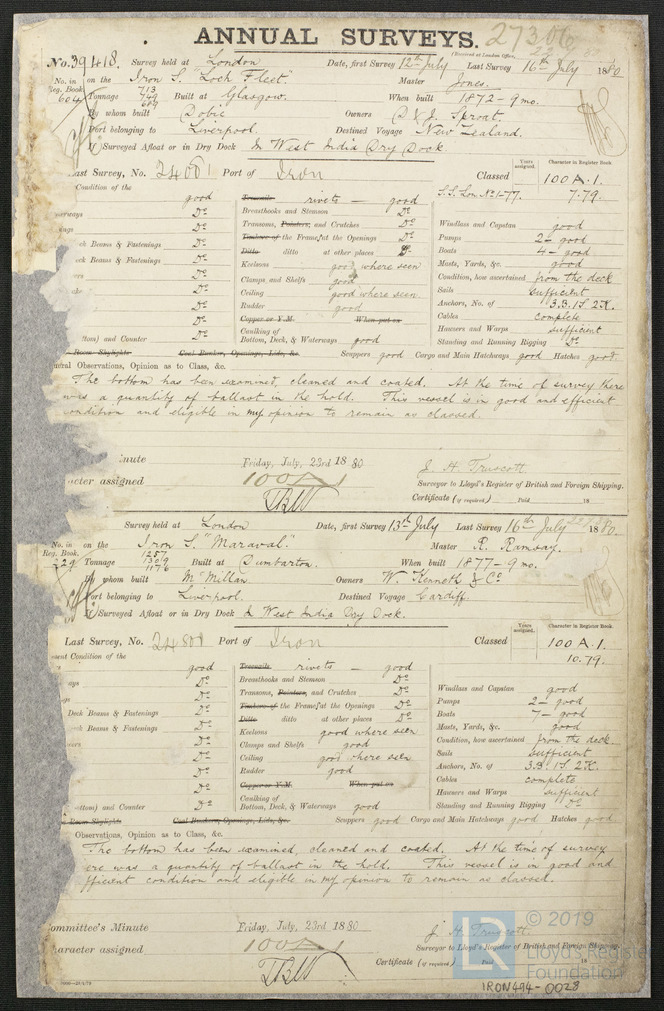 ANNUAL SURVEYS.
27306
(Received at London Office
No. 39418. Survey held at London Date, first Survey 12th July Last Survey 16th July 1880
No. in Reg. Book. on the Iron S. "Loch Fleet" Master Jones.
604 Tonnage 713 749 689 Built at Glasgow. When built 1872 - 9 mo.
By whom built Dobie Owners D & J. Sproat.
Port belonging to Liverpool. Destined Voyage New Zealand.
If Surveyed Afloat or in Dry Dock In West India Dry Dock
Last Survey, No. 24001 Port of Iron Classed Years assigned. Character in Register Book. 100 A.1.
S.S. Lon. No 1-77. 7.79.
Condition of the
good rivets — good
Do Breasthooks and Stemson Do
Do Transoms, Pointers, and Crutches Do Windlass and Capstan good
Do Timbers of the Frames at the Openings Do Pumps 2 - good
ck Beams & Fastenings Do Ditto ditto at other places Do Boats 4 - good
ck Beams & Fastenings Do Keelsons good where seen Masts, Yards, &c. good
Do Clamps and Shelfs good Condition, how ascertained from the deck
Do Ceiling good where seen Sails Sufficient
Do Rudder good Anchors, No. of 3.B. 1S. 2K.
Do Copper or Y.M. When put on Cables complete
Do Caulking of Hawsers and Warps sufficient
and Counter Do Bottom, Deck, & Waterways good Standing and Running Rigging Do
Room Skylights Coal Bunker, Openings, Lids, &c. Scuppers good Cargo and Main Hatchways good Hatches good.
General Observations, Opinion as to Class, &c.
The bottom has been examined, cleaned and coated. At the time of survey there
was a quantity of ballast in the hold. This vessel is in good and efficient
condition and eligible in my opinion to remain as classed.
inute Friday, July, 23rd 1880 J. H. Truscott
acter assigned 100 A 1 Surveyor to Lloyd's Register of British and Foreign Shipping.
Certificate (if required) Paid 18
Survey held at London Date, first Survey 13th July Last Survey 16th July 1880.
No. in Reg. Book. on the Iron S. "Maraval". Master R. Ramsay.
229 Tonnage 1287 1309 1176 Built at Dumbarton. When built 1877 - 9 mo.
By whom built McMillan Owners W. Kenneth & Co
Port belonging to Liverpool. Destined Voyage Cardiff.
If Surveyed Afloat or in Dry Dock In West India Dry Dock.
Last Survey, No. 24801 Port of Iron Classed Years assigned. Character in Register Book. 100 A.1.
10.79.
sent Condition of the
good rivets — good
Do Breasthooks and Stemson Do
Do Transoms, Pointers, and Crutches Do Windlass and Capstan good
Do Timbers of the Frames at the Openings Do Pumps 2 - good
Deck Beams & Fastenings Do Ditto ditto at other places Do Boats 7 - good
k Beams & Fastenings Do Keelsons good where seen Masts, Yards, &c. good
Do Clamps and Shelfs good Condition, how ascertained from the deck.
Do Ceiling good where seen Sails Sufficient
Do Rudder good Anchors, No. of 3.B. 1S. 2K.
Do Copper or Y.M. When put on Cables complete
Do Caulking of Hawsers and Warps sufficient
ottom) and Counter Do Bottom, Deck, & Waterways good Standing and Running Rigging Do
Room Skylights Coal Bunkers, Openings, Lids, &c. Scuppers good Cargo and Main Hatchways good Hatches good
Observations, Opinion as to Class, &c.
The bottom has been examined, cleaned and coated. At the time of survey
ere was a quantity of ballast in the hold. This vessel is in good and
fficient condition and eligible in my opinion to remain as classed.
ommittee's Minute Friday, July, 23rd 1880 J. H. Truscott.
aracter assigned 100 A 1 Surveyor to Lloyd's Register of British and Foreign Shipping.
Certificate (if required) Paid 18
LR © 2019
Lloyd's Register
Foundation
IRON494-0028